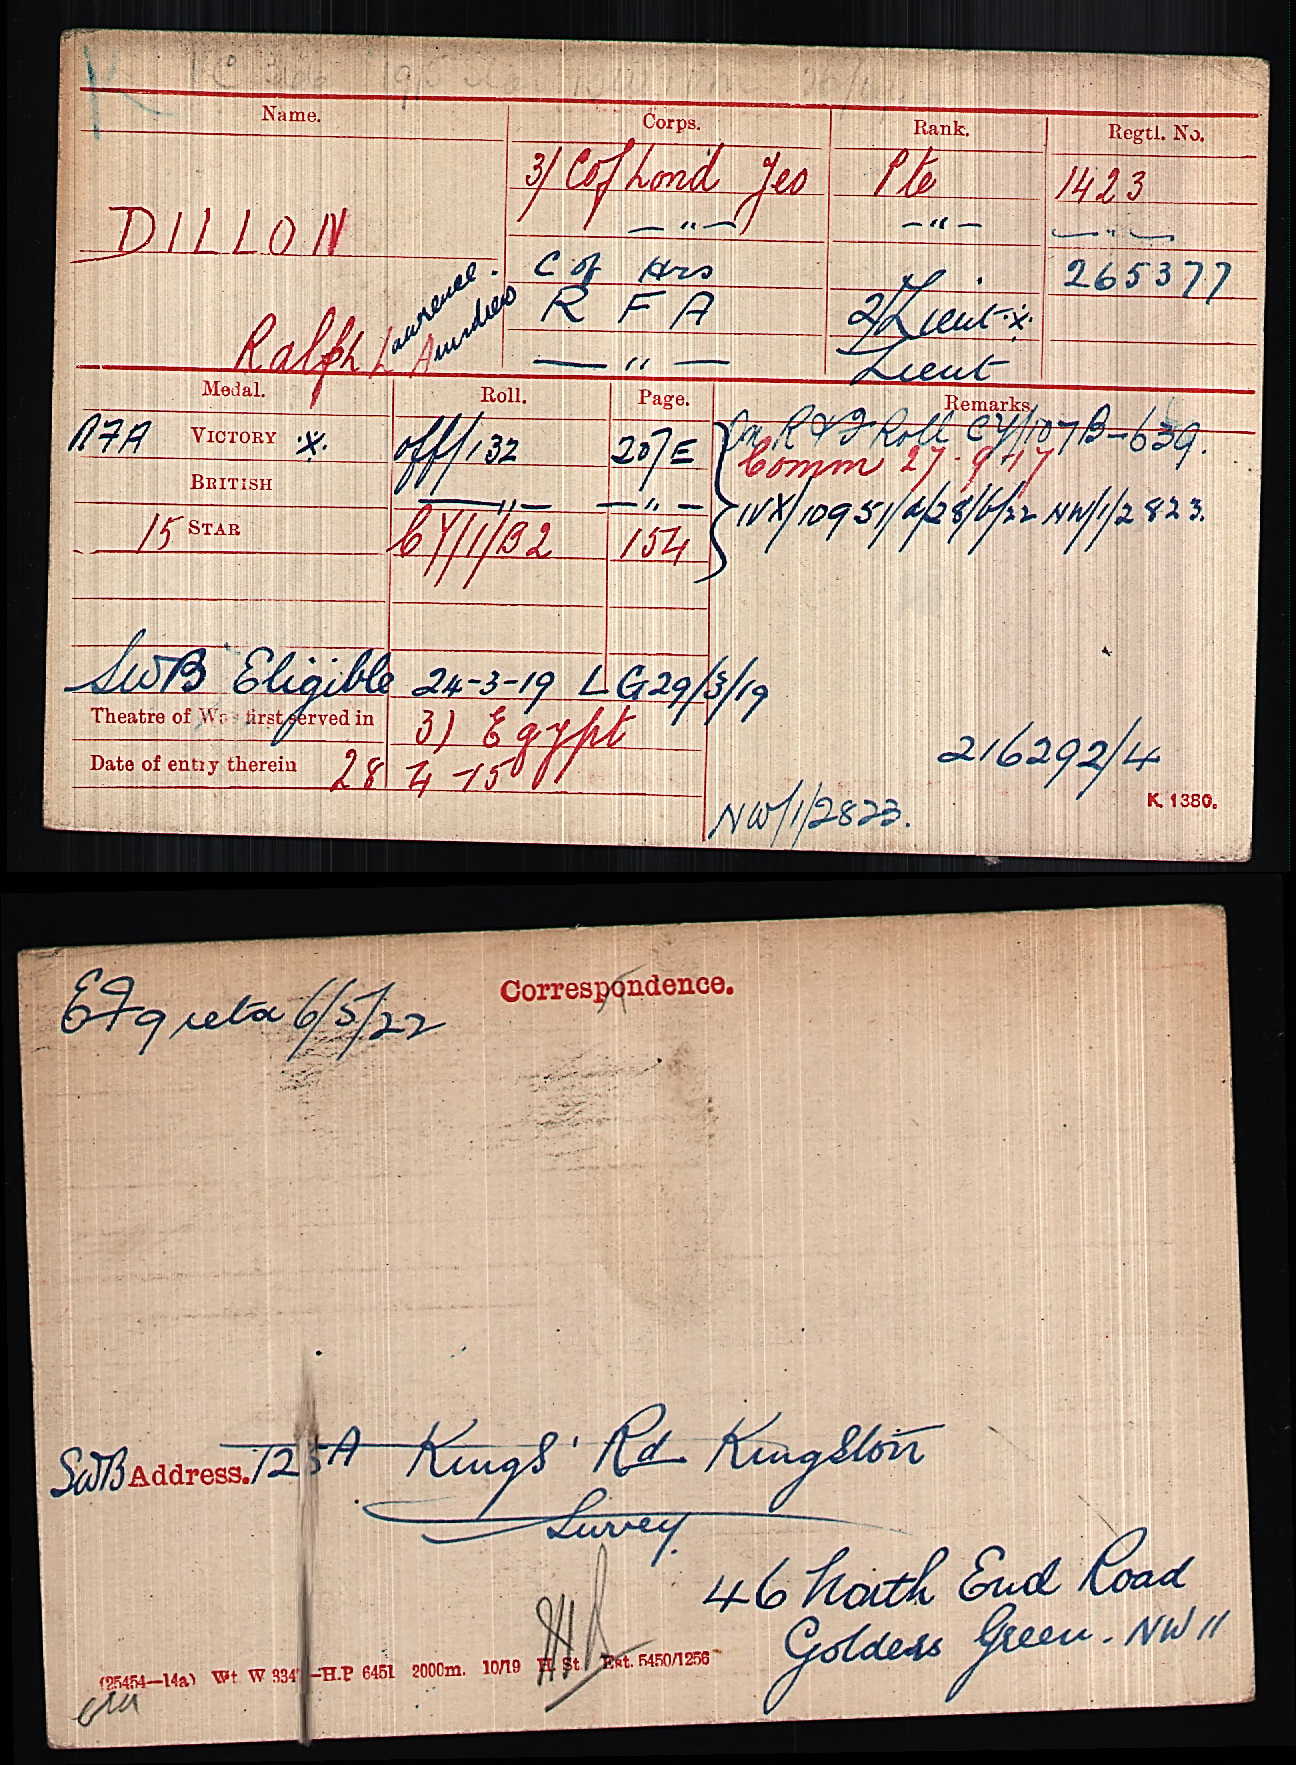 Name. Corps. Rank. Regtl. No.
3/ Cof Lond Yeo Pte 1423
DILLON —"— —"— —"—
C of Hrs 265377
Ralph Laurence. Andrew R F A 2/Lieut. x.
—"— Lieut
Medal. Roll. Page. Remarks
RFA VICTORY x. off/132 207E On R & F Roll CY/107B-639.
BRITISH —"— —"— Comm 27.9.17
15 STAR CY/1/B2 154 IVX/10951/A/28/6/22 NW/1/2823.
SWB Eligible 24-3-19 LG29/3/19
Theatre of War first served in 3) Egypt
Date of entry therein 28 4-15
216292/4
K. 1380.
NW/1/2823.
Correspondence.
6/5/22
SWB Address. 125A Kings' Rd Kingston
Survey.
46 North End Road
Golders Green. NW 11
(25454—14a) Wt W 334 —H.P 6451 2000m. 10/19 H. St. Est. 5450/1256